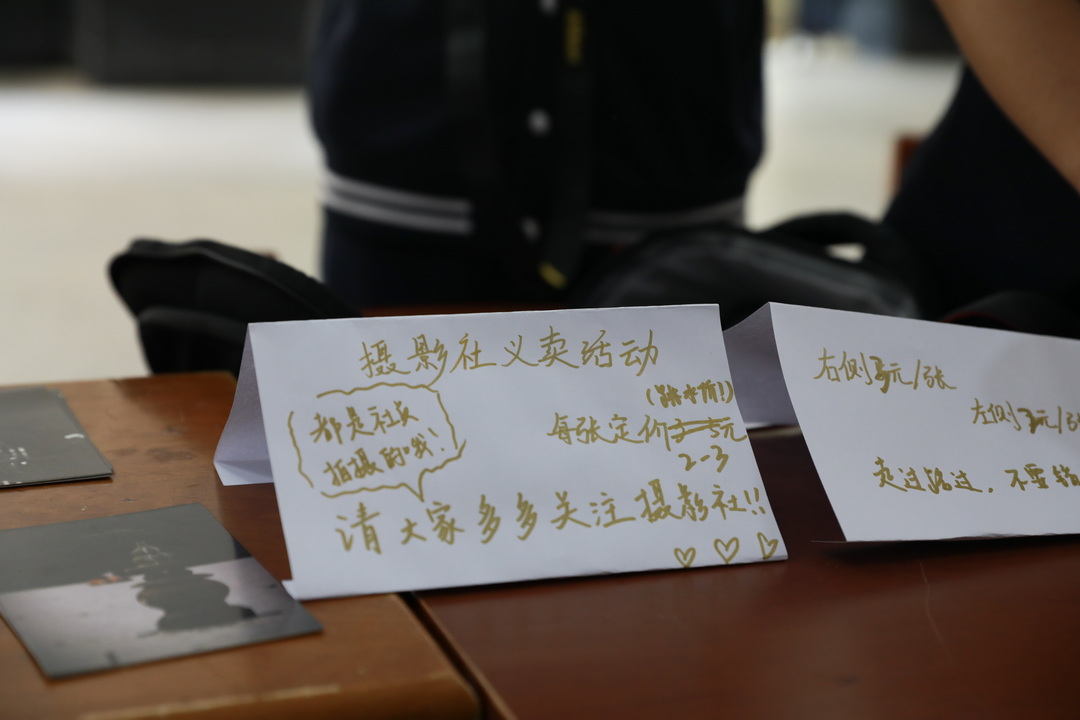 摄影社义卖活动
都是社员
拍摄的哦!
(跳水价!)
每张定价3-5元
2-3
请大家多多关注摄影社!!
右侧3元/张
左侧3元/
走过路过,不要错